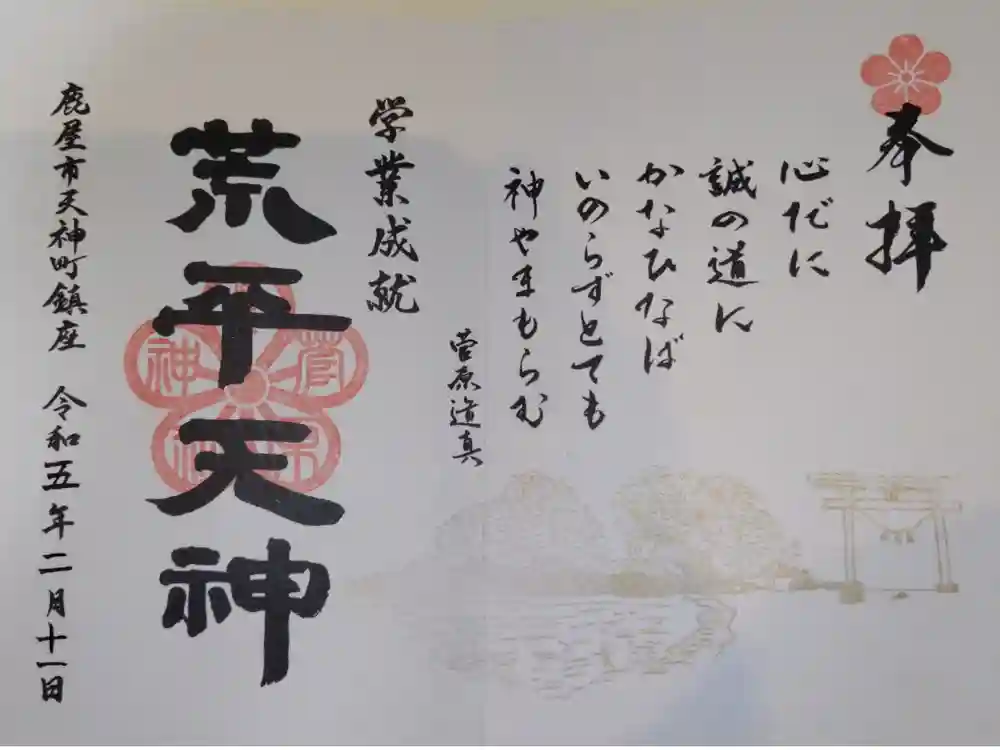 奉拝
心だに
誠の道に
かなひなば
いのらずとても
神やまもらむ
菅原道真
学業成就
荒平天神
鹿屋市天神町鎮座 令和五年二月十一日